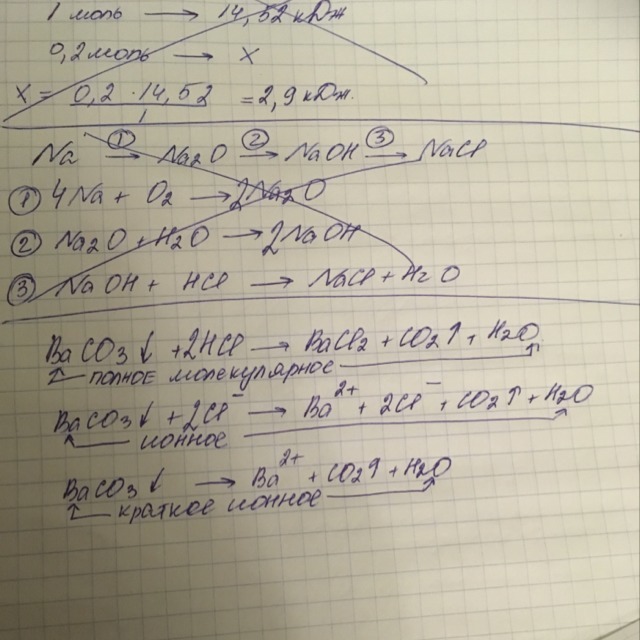 1 моль → 14,52 кДж
0,2 моль → x
x = 0,2 · 14,52 / 1 = 2,9 кДж.
Na ①→ Na2O ②→ NaOH ③→ NaCl
① 4Na + O2 → 2Na2O
② Na2O + H2O → 2NaOH
③ NaOH + HCl → NaCl + H2O
BaCO3↓ + 2HCl → BaCl2 + CO2↑ + H2O
полное молекулярное
BaCO3↓ + 2Cl⁻ → Ba²⁺ + 2Cl⁻ + CO2↑ + H2O
ионное
BaCO3↓ → Ba²⁺ + CO2↑ + H2O
краткое ионное